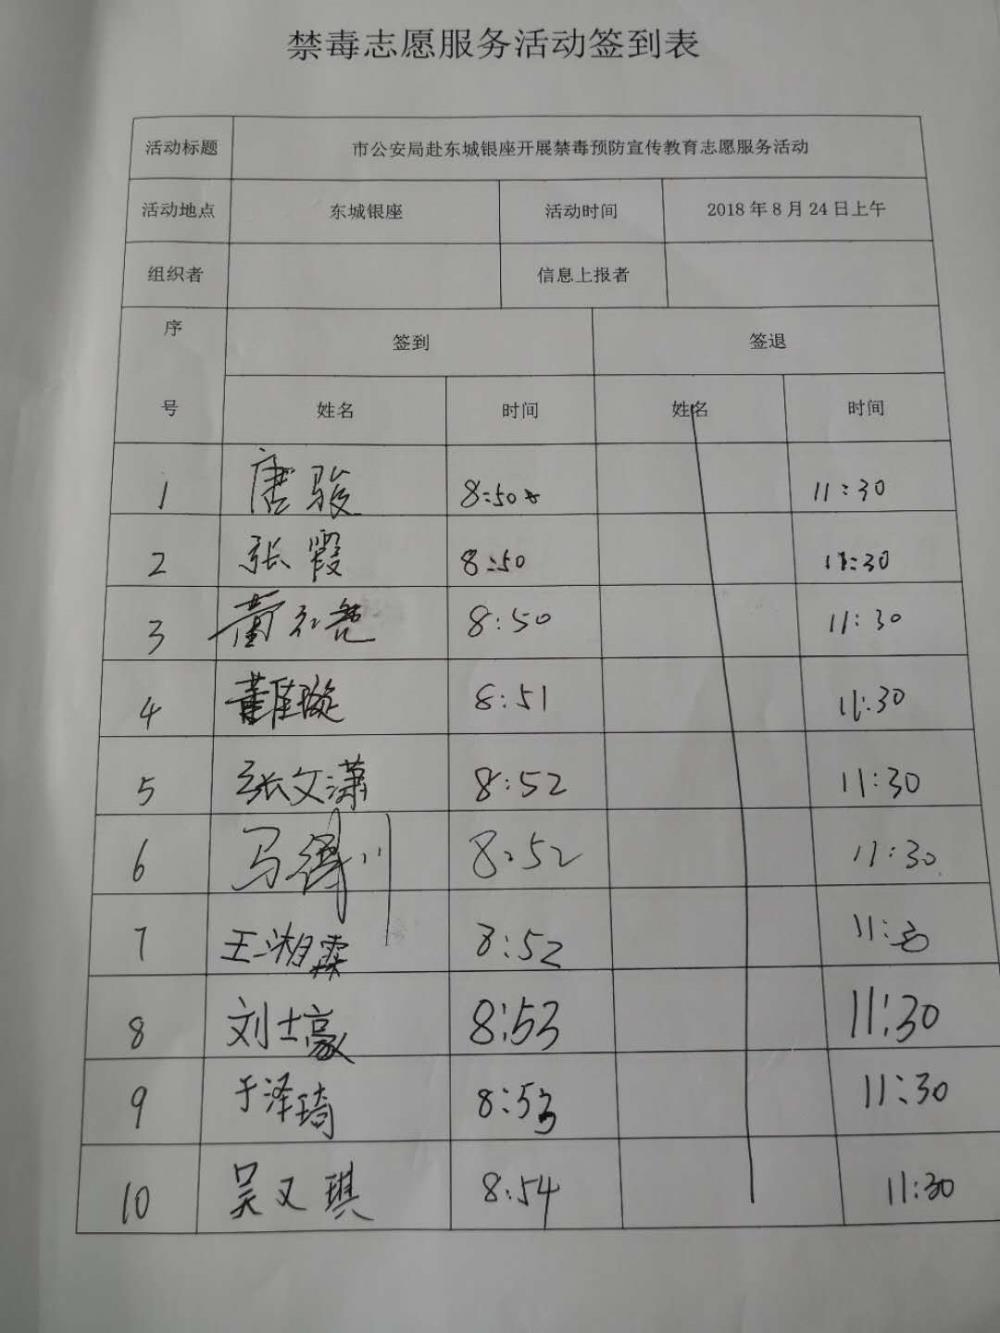 禁毒志愿服务活动签到表
活动标题 市公安局赴东城银座开展禁毒预防宣传教育志愿服务活动
活动地点 东城银座 活动时间 2018年8月24日上午
组织者 信息上报者
序号 签到 签退
姓名 时间 姓名 时间
1 唐骏 8:50 11:30
2 张霞 8:50 11:30
3 8:50 11:30
4 董 璇 8:51 11:30
5 张文潇 8:52 11:30
6 马 川 8:52 11:30
7 王湘霖 8:52 11:30
8 刘士豪 8:53 11:30
9 于泽琦 8:53 11:30
10 吴又琪 8:54 11:30